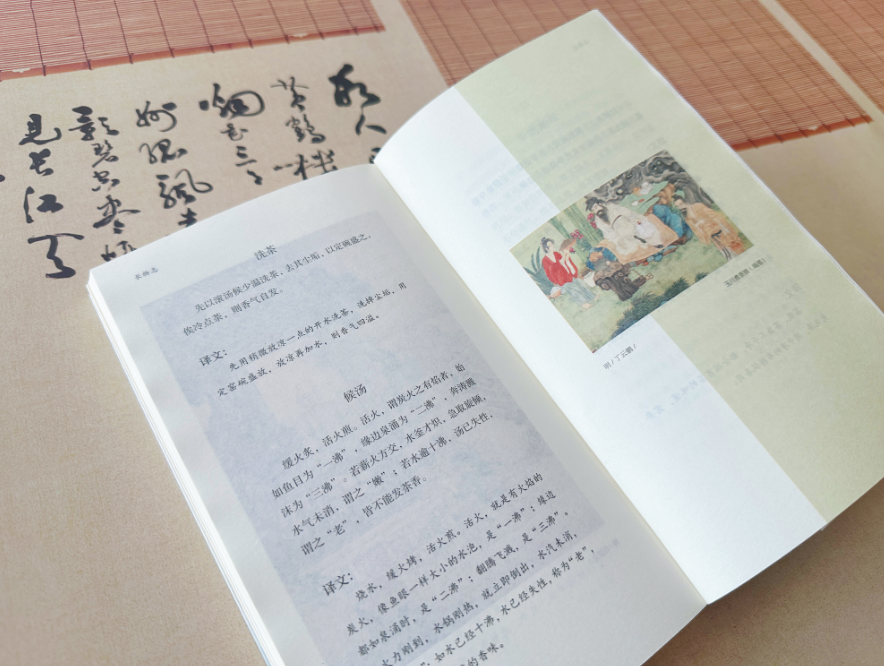 故人
黄鹤楼
烟花三月
州孤帆
影碧空尽惟
见长江天
长物志
洗茶
先以滚汤候少温洗茶,去其尘垢,以定碗盛之,
俟冷点茶,则香气自发。
译文:
先用稍微放凉一点的开水洗茶,洗掉尘垢,用
定窑碗盛放,放凉再加水,则香气四溢。
候汤
缓火炙,活火煎。活火,谓炭火之有焰者,始
如鱼目为“一沸”,缘边泉涌为“二沸”,奔涛溅
沫为“三沸”。若薪火方交,水釜才炽,急取旋倾,
水气未消,谓之“嫩”;若水逾十沸,汤已失性,
谓之“老”,皆不能发茶香。
译文:
烧水,缓火烤,活火煎。活火,就是有火焰的
炭火,像鱼眼一样大小的水泡,是“一沸”;缘边
都如泉涌时,是“二沸”;翻腾飞溅,是“三沸”。
火力刚到,水锅刚热,就立即倒出,水汽未消,
”;如水已经十沸,水已经失性,称为“老”,
的香味。
玉川煮茶图(局部)
明/丁云鹏/